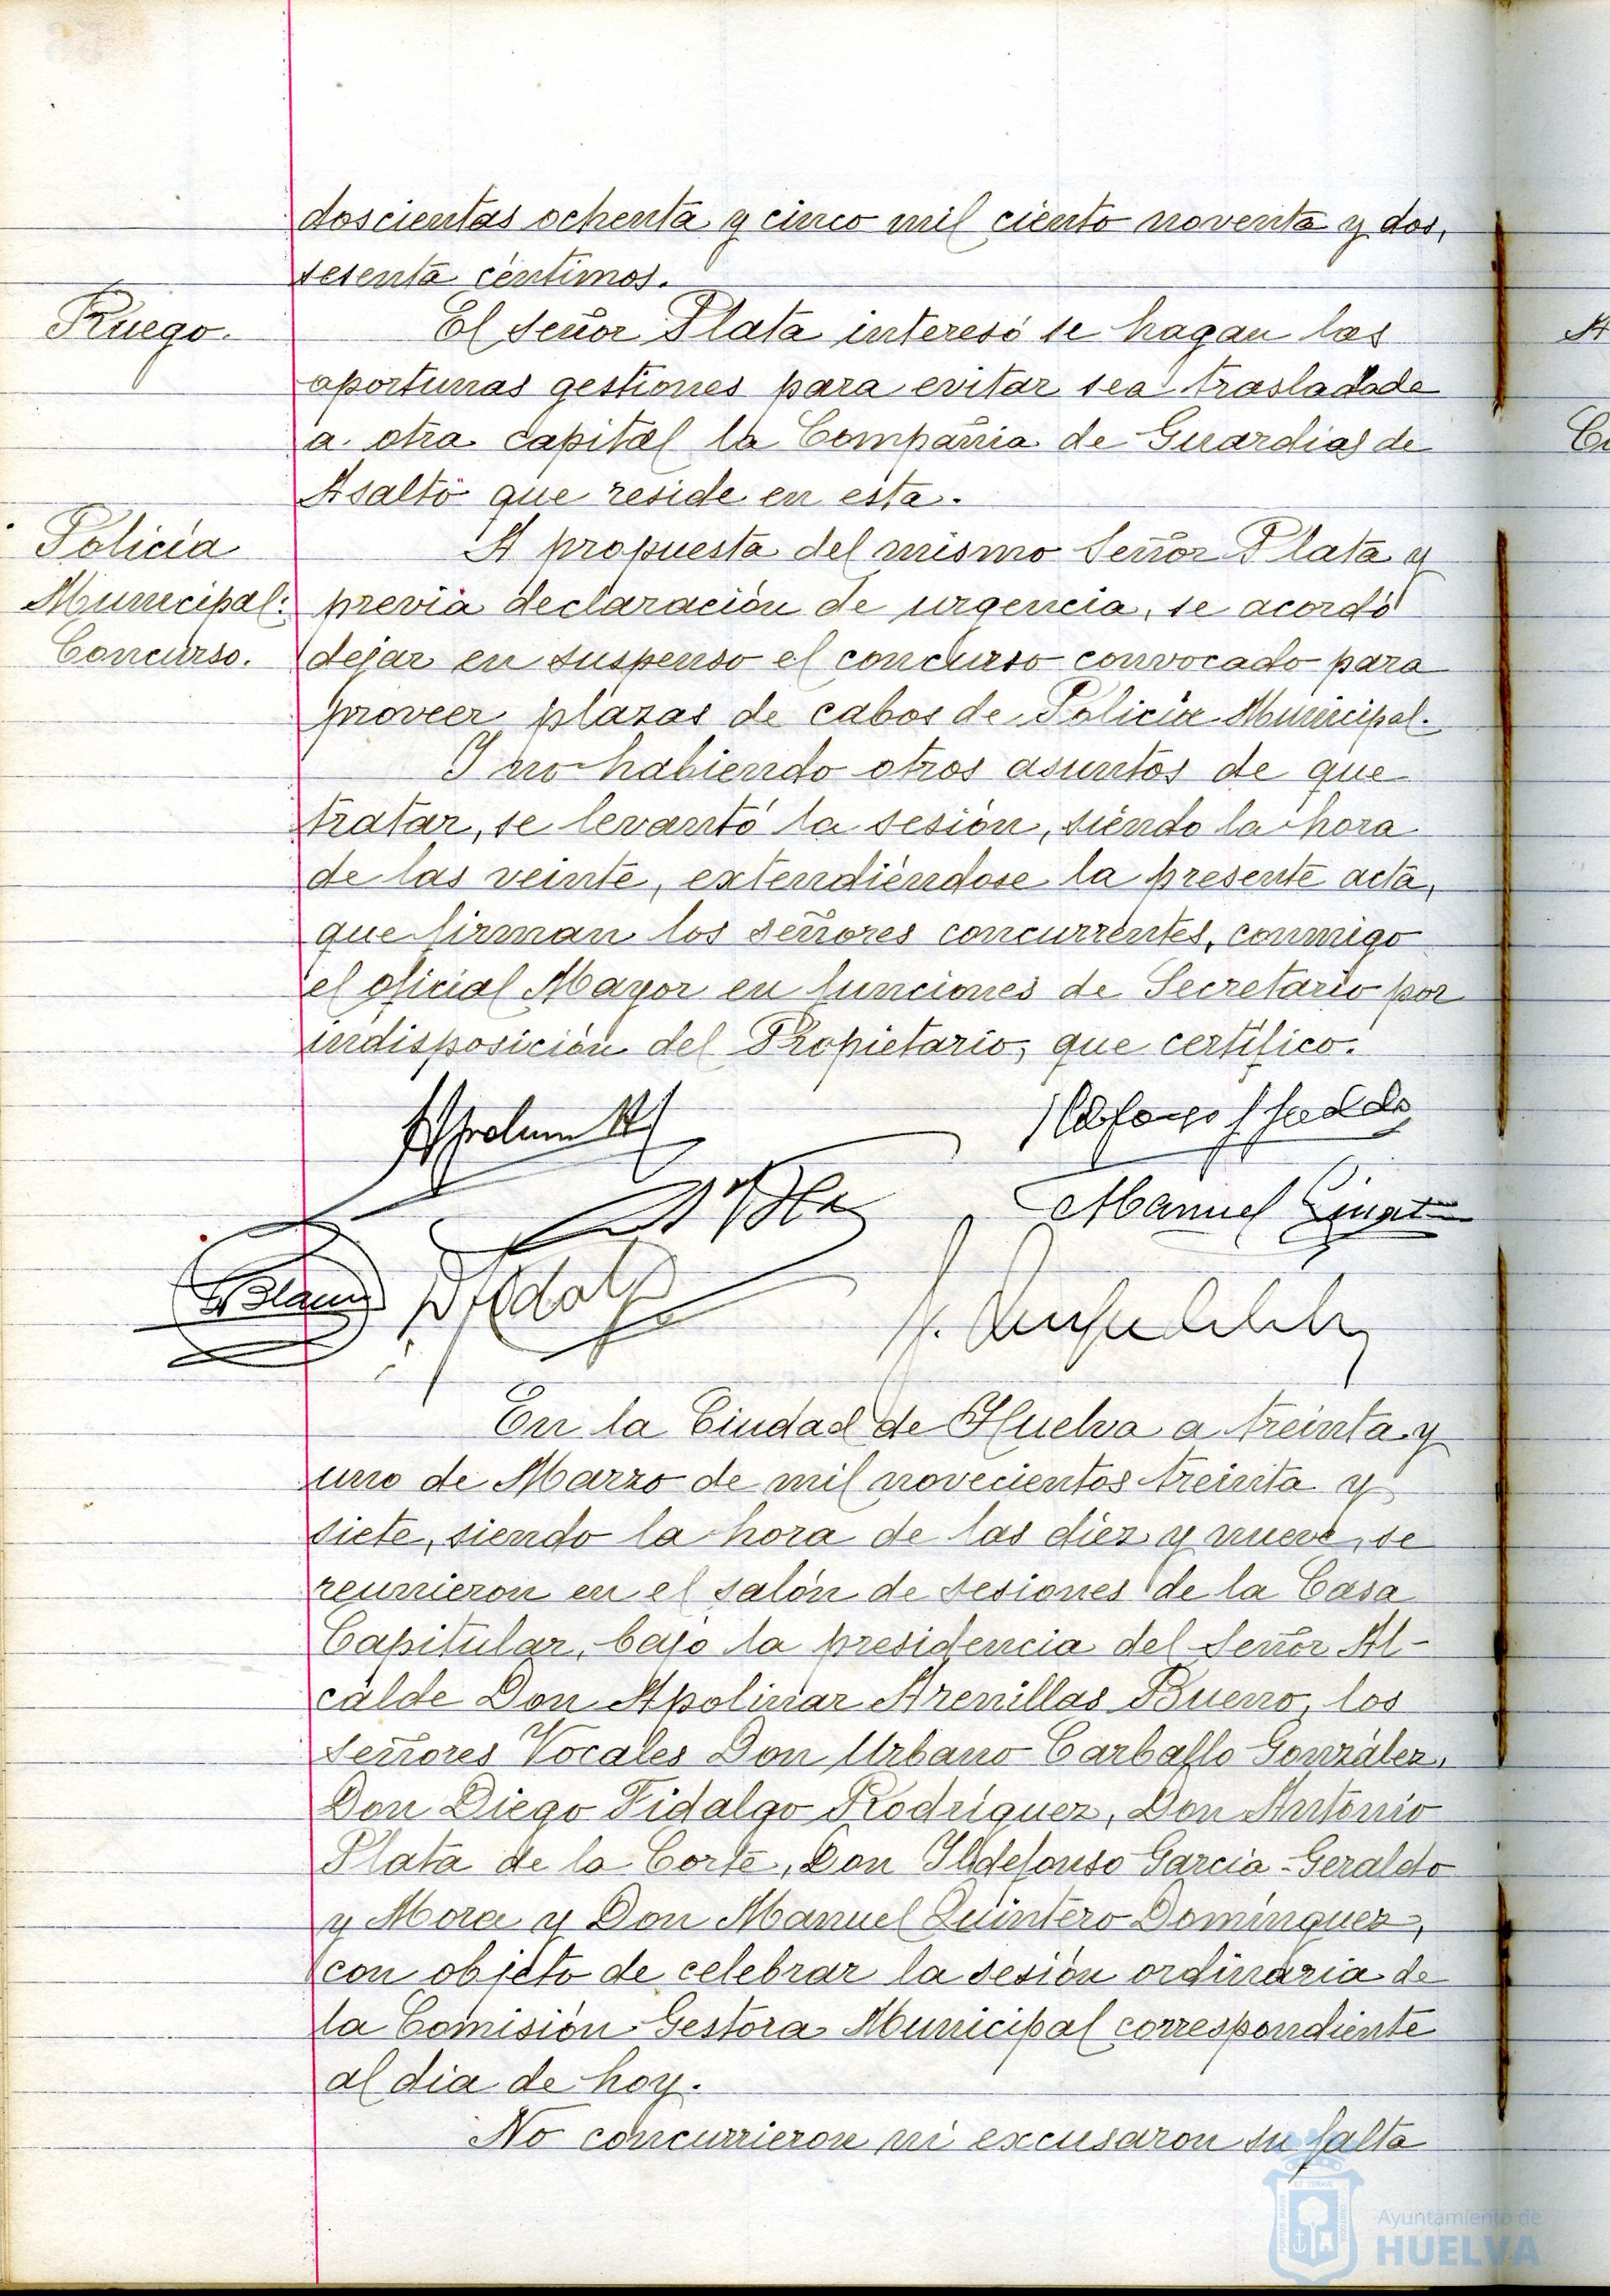 doscientas ochenta y cinco mil ciento noventa y dos,
sesenta céntimos.
Ruego.
El señor Plata interesó se hagan las
oportunas gestiones para evitar sea trasladada
a otra capital la Compañia de Guardias de
Asalto que reside en esta.
Policía
Municipal:
Concurso.
A propuesta del mismo Señor Plata y
previa declaración de urgencia, se acordó
dejar en suspenso el concurso convocado para
proveer plazas de cabos de Policía Municipal.
Y no habiendo otros asuntos de que
tratar, se levantó la sesión, siendo la hora
de las veinte, extendiéndose la presente acta,
que firman los señores concurrentes, conmigo
el oficial Mayor en funciones de Secretario por
indisposición del Propietario, que certifico.
Manuel
Blanco
En la Ciudad de Huelva a treinta y
uno de Marzo de mil novecientos treinta y
siete, siendo la hora de las diez y nueve, se
reunieron en el salón de sesiones de la Casa
Capitular, bajo la presidencia del Señor Al-
calde Don Apolinar Arenillas Bueno, los
señores Vocales Don Urbano Carballo González,
Don Diego Fidalgo Rodríguez, Don Antonio
Plata de la Corte, Don Ildefonso García-Geraldo
y Mora y Don Manuel Quintero Domínguez,
con objeto de celebrar la sesión ordinaria de
la Comisión Gestora Municipal correspondiente
al dia de hoy.
No concurrieron ni excusaron su falta
Ayuntamiento de
HUELVA